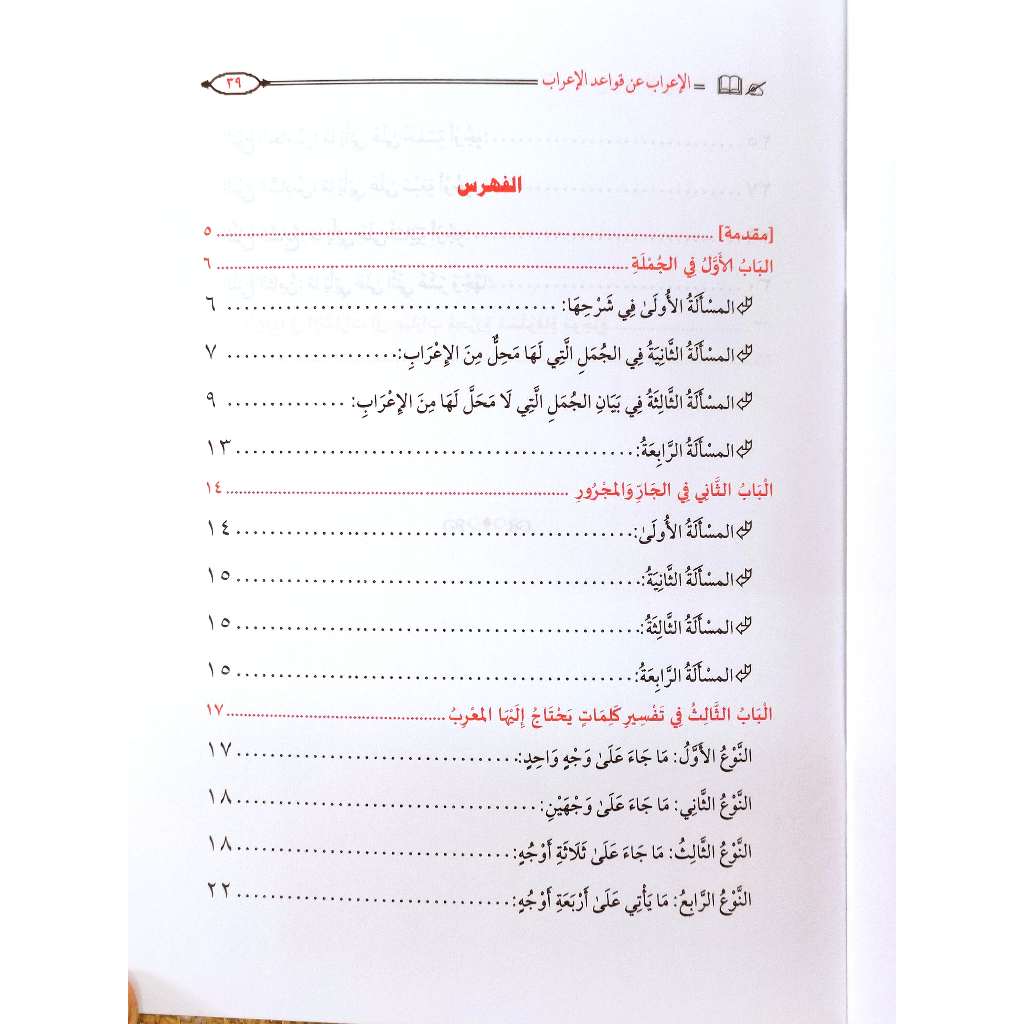 الإعراب عن قواعد الإعراب ٣٩
الفهرس
[مقدمة] ٥
البَابُ الأَوَّلُ فِي الجُمْلَةِ ٦
المسْأَلَةُ الأُولَىٰ فِي شَرْحِهَا: ٦
المسْأَلَةُ الثَّانِيَةُ فِي الجُمَلِ الَّتِي لَهَا مَحِلٌّ مِنَ الإِعْرَابِ: ٧
المسْأَلَةُ الثَّالِثَةُ فِي بَيَانِ الجُمَلِ الَّتِي لَا مَحَلَّ لَهَا مِنَ الإِعْرَابِ: ٩
المسْأَلَةُ الرَّابِعَةُ: ١٣
الْبَابُ الثَّانِي فِي الجَارِّ وَالمجْرُورِ ١٤
المسْأَلَةُ الأُولَىٰ: ١٤
المسْأَلَةُ الثَّانِيَةُ: ١٥
المسْأَلَةُ الثَّالِثَةُ: ١٥
المسْأَلَةُ الرَّابِعَةُ: ١٥
الْبَابُ الثَّالِثُ فِي تَفْسِيرِ كَلِمَاتٍ يَحْتَاجُ إِلَيْهَا المعْرِبُ ١٧
النَّوْعُ الأَوَّلُ: مَا جَاءَ عَلَىٰ وَجْهٍ وَاحِدٍ: ١٧
النَّوْعُ الثَّانِي: مَا جَاءَ عَلَىٰ وَجْهَيْنِ: ١٨
النَّوْعُ الثَّالِثُ: مَا جَاءَ عَلَىٰ ثَلَاثَةِ أَوْجُهٍ: ١٨
النَّوْعُ الرَّابِعُ: مَا يَأْتِي عَلَىٰ أَرْبَعَةِ أَوْجُهٍ: ٢٢